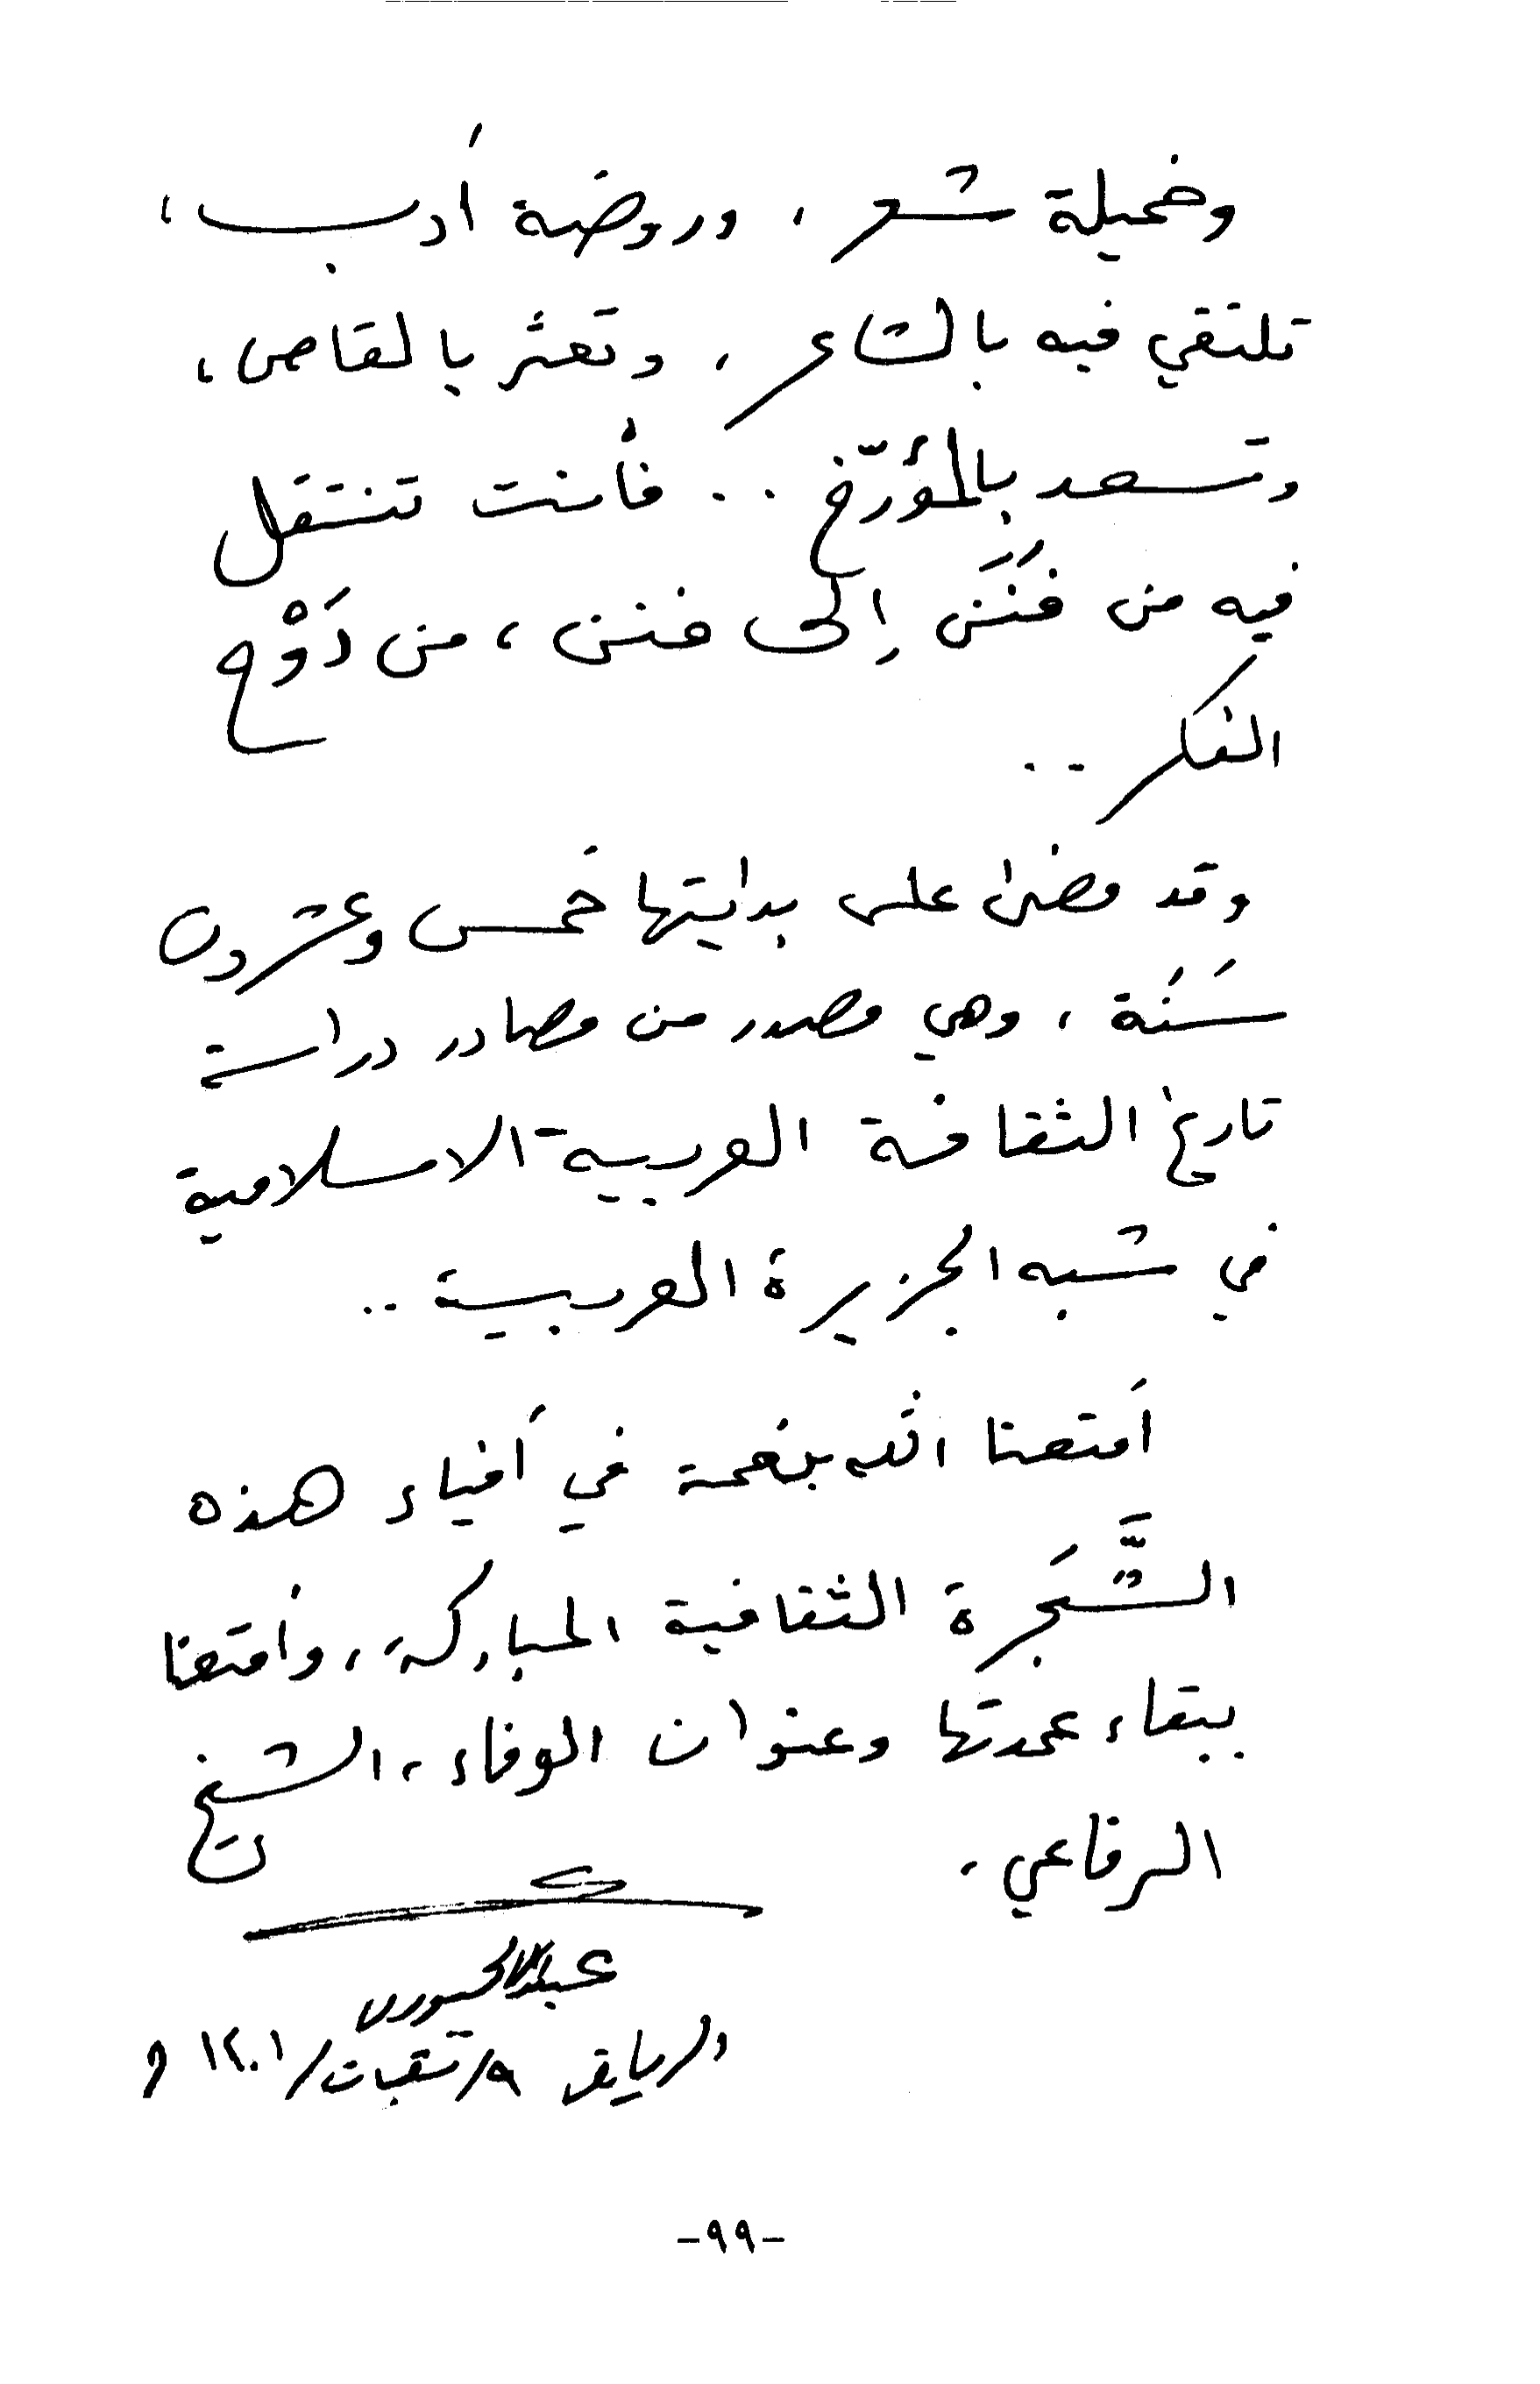 وخميلة شعر ، وروضة أَدب ،
تلتقي فيه بالشاعر ، وتعثر بالقاص ،
وتسعد بالمؤرّخ .. فأنت تنتقل
فيه من فَنَنٍ إلى فنن ، من دَوْح
الفكر ..
وقد مضىٰ على بدايتها خمس وعشرون
سَنَة ، وهي مصدر من مصادر دراسة
تاريخ الثقافة العربية الاسلامية
في شبه الجزيرة العربية ..
أَمتعنا الله بنعمة في أَفياء هذه
الشَّجَرة الثقافية المباركة ، وأمتعنا
ببقاء عمدتها وعنوان الوفاء ، الشيخ
الرفاعي .
الرياض ٩/شعبان/
-٩٩-